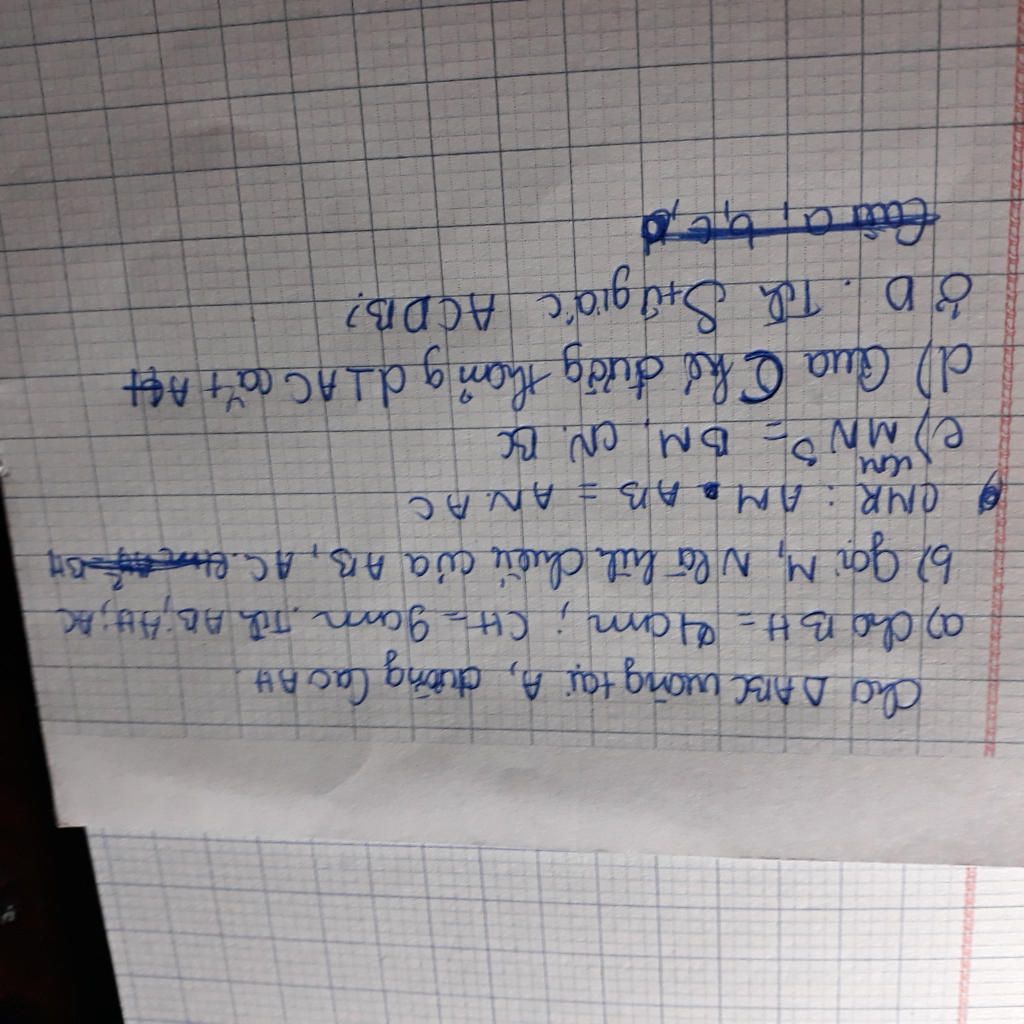 Cho ΔABC vuông tại A, đường cao AH.
a) Cho BH = 4cm ; CH = 9cm. Tính AB; AH; AC
b) Gọi M, N là hình chiếu của AB, AC
CMR : AM . AB = AN . AC
c) MN³ = BM . CN . BC
d) Qua C kẻ đường thẳng d ⊥ AC cắt AH
ở D. Tính S tứ giác ACDB?
Câu a, b, c,